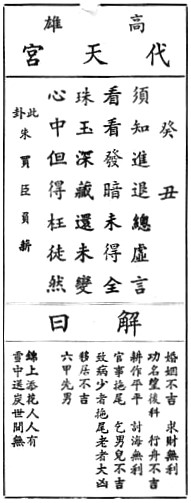 高雄
代天宮
癸丑
須知進退總虛言
看看發暗未得全
珠玉深藏還未變
心中但得枉徒然
此卦朱買臣負薪
解曰
婚姻不吉 求財無利
功名望後科 行舟不吉
耕作平平 討海無利
官事拖尾 乞男兒不吉
致病少者拖尾老者大凶
移居不吉
六甲先男
錦上添花人人有
雪中送炭世間無